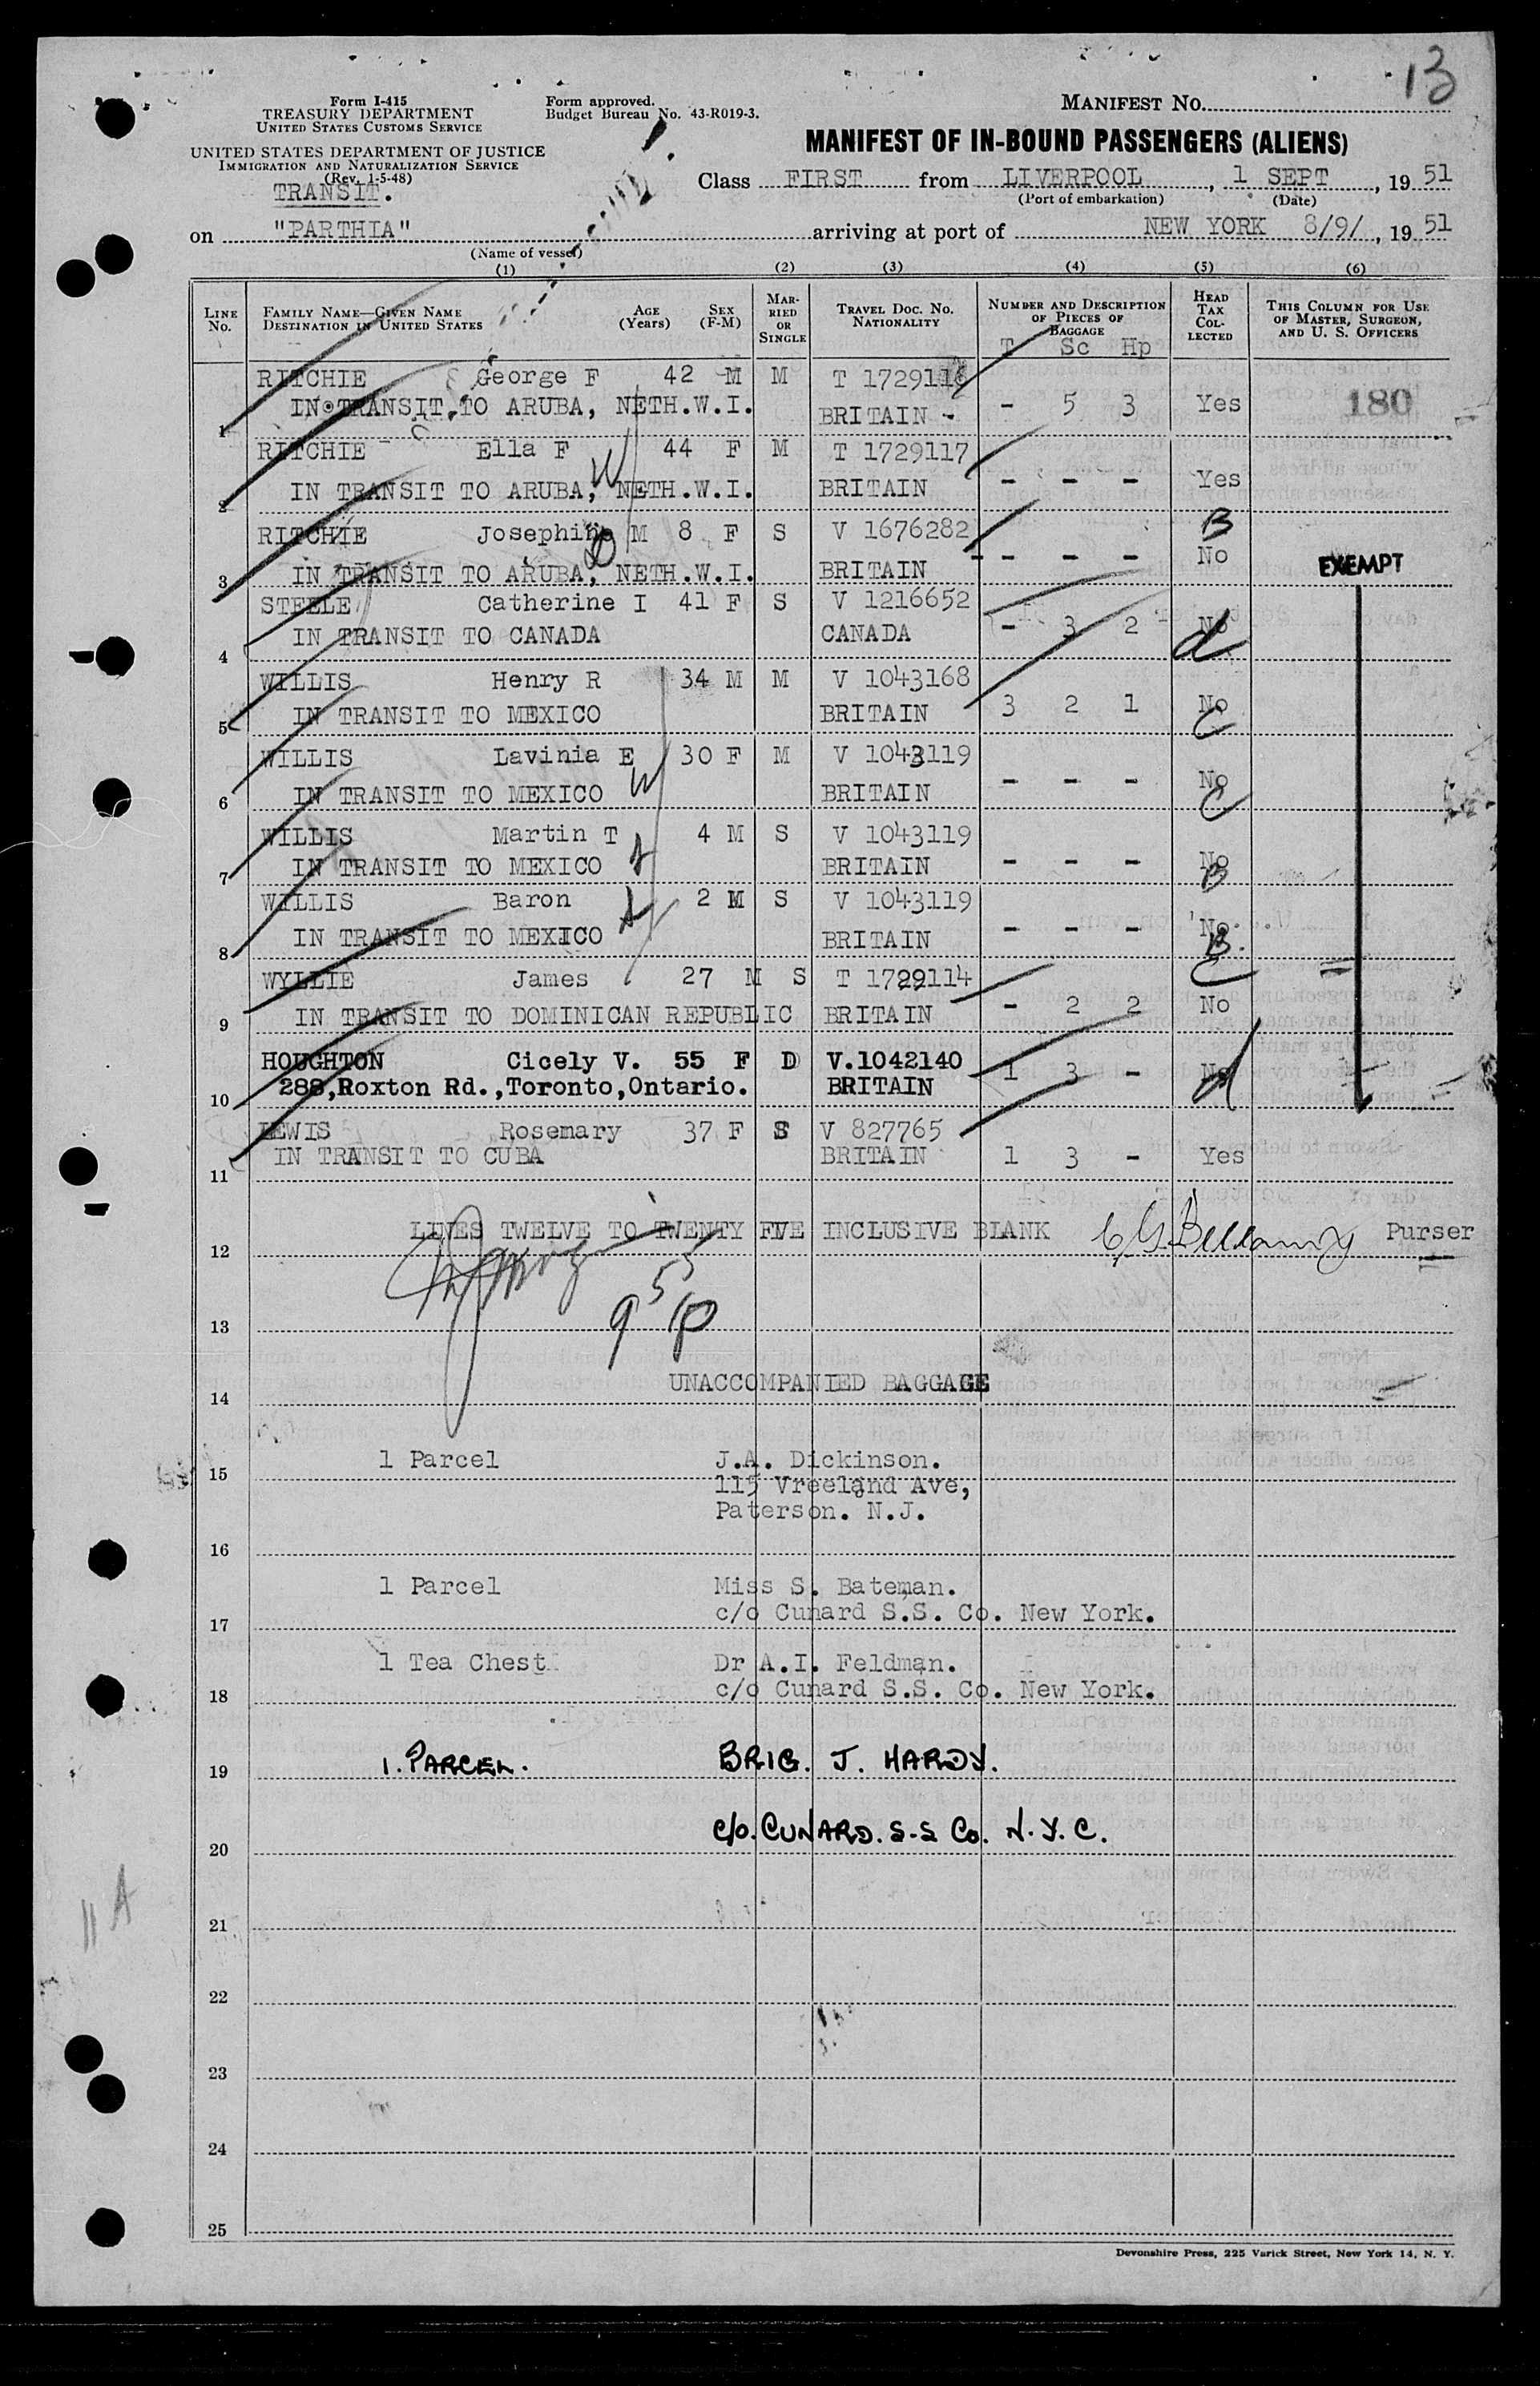 13
Form I-415
TREASURY DEPARTMENT
UNITED STATES CUSTOMS SERVICE
Form approved.
Budget Bureau No. 43-R019-3.
MANIFEST NO.
UNITED STATES DEPARTMENT OF JUSTICE
IMMIGRATION AND NATURALIZATION SERVICE
(Rev. 1-5-48)
MANIFEST OF IN-BOUND PASSENGERS (ALIENS)
TRANSIT.
Class FIRST from LIVERPOOL, 1 SEPT, 19 51
(Port of embarkation) (Date)
on "PARTHIA" arriving at port of NEW YORK 8/9/, 19 51
(Name of vessel)
(1) (2) (3) (4) (5) (6)
LINE No. FAMILY NAME—GIVEN NAME DESTINATION IN UNITED STATES AGE (Years) SEX (F-M) MAR-RIED OR SINGLE TRAVEL DOC. NO. NATIONALITY NUMBER AND DESCRIPTION OF PIECES OF BAGGAGE HEAD TAX COL-LECTED THIS COLUMN FOR USE OF MASTER, SURGEON, AND U. S. OFFICERS
T Sc Hp
RITCHIE George F 42 M M T 1729116
1 IN TRANSIT TO ARUBA, NETH.W.I. BRITAIN - 5 3 Yes 180
RITCHIE Ella F 44 F M T 1729117
2 IN TRANSIT TO ARUBA, NETH.W.I. BRITAIN - - - Yes
RITCHIE Josephine M 8 F S V 1676282 B
3 IN TRANSIT TO ARUBA, NETH.W.I. BRITAIN - - - No EXEMPT
STEELE Catherine I 41 F S V 1216652
4 IN TRANSIT TO CANADA CANADA - 3 2 No d
WILLIS Henry R 34 M M V 1043168
5 IN TRANSIT TO MEXICO BRITAIN 3 2 1 No C
WILLIS Lavinia E 30 F M V 1043119
6 IN TRANSIT TO MEXICO BRITAIN - - - No C
WILLIS Martin T 4 M S V 1043119
7 IN TRANSIT TO MEXICO BRITAIN - - - No B
WILLIS Baron 2 M S V 1043119
8 IN TRANSIT TO MEXICO BRITAIN - - - No B.
WYLLIE James 27 M S T 1729114 C
9 IN TRANSIT TO DOMINICAN REPUBLIC BRITAIN - 2 2 No
HOUGHTON Cicely V. 55 F D V.1042140
10 288,Roxton Rd.,Toronto,Ontario. BRITAIN 1 3 - No d
LEWIS Rosemary 37 F S V 827765
11 IN TRANSIT TO CUBA BRITAIN 1 3 - Yes
12 LINES TWELVE TO TWENTY FIVE INCLUSIVE BLANK C G Bellamy Purser
13
14 UNACCOMPANIED BAGGAGE
15 1 Parcel J.A. Dickinson.
115 Vreeland Ave,
Paterson. N.J.
16
1 Parcel Miss S. Bateman.
17 c/o Cunard S.S. Co. New York.
1 Tea Chest Dr A.I. Feldman.
18 c/o Cunard S.S. Co. New York.
19 1. PARCEL. BRIG. J. HARDY.
20 c/o. CUNARD. S-S Co. N.Y.C.
11 A
21
22
23
24
25
Devonshire Press, 225 Varick Street, New York 14, N. Y.